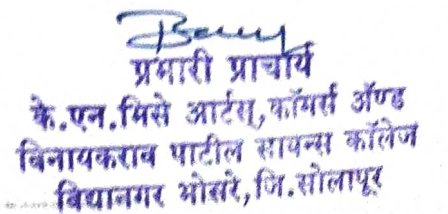 प्रभारी प्राचार्य
के.एन.भिसे आर्टस्,कॉमर्स अॅण्ड
विनायकराव पाटील सायन्स कॉलेज
विद्यानगर भोसरे,जि.सोलापूर